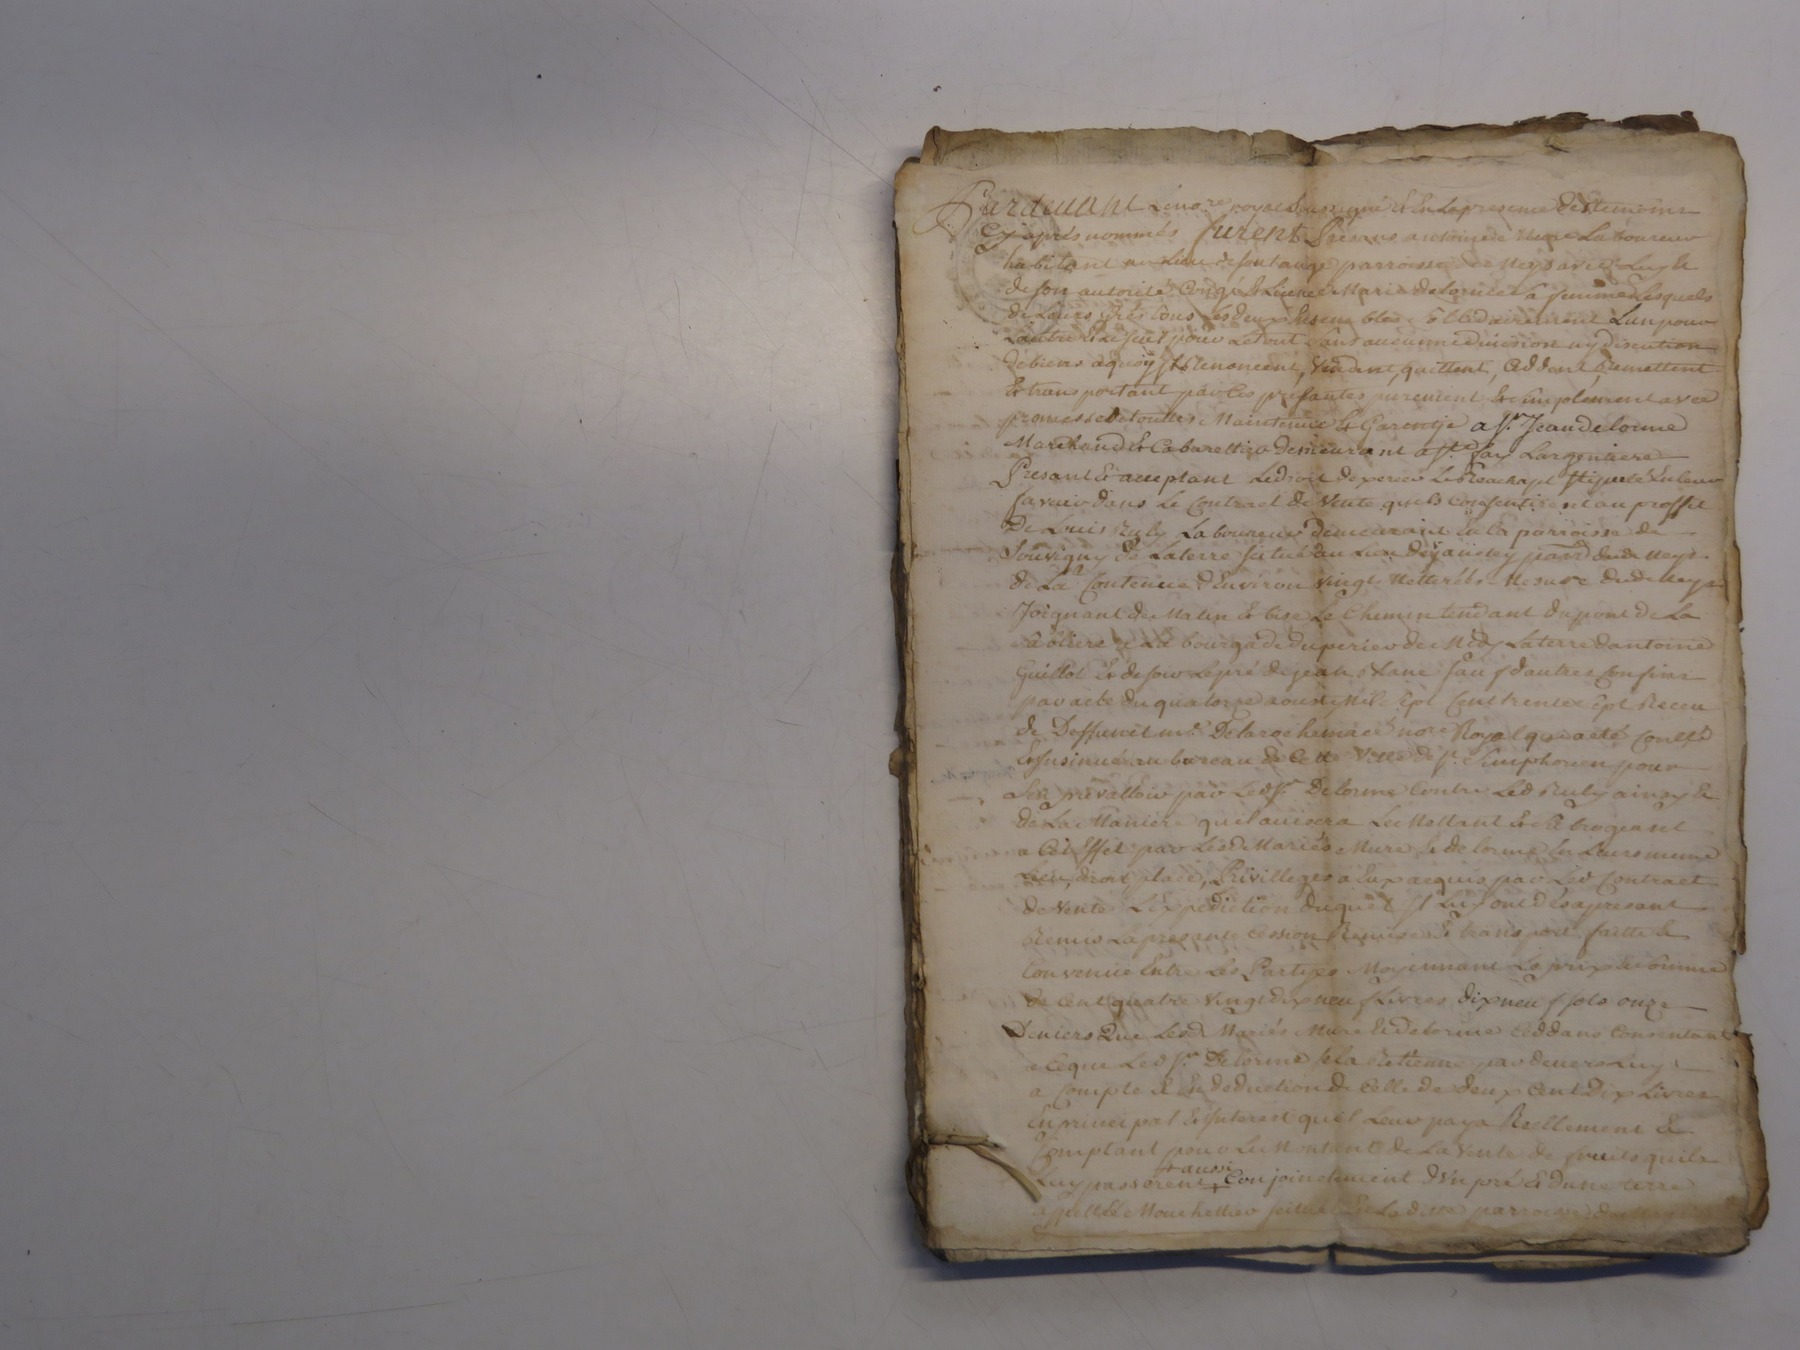 Pardevant Le no.re royal soussigné Et En la presence des temoins
Cy apres nommés furent Présans antoine Mure Laboureur
habitant au Lieu de fontauge parroisse de Meys avec Luy Et
de son autorité Congé Et Licence Marie deLorme sa femme Lesquels
de Leurs grés tous Les deux Ensembles Sollidairement L'un pour
L'autre Et Le seul pour Le tout sans aucunne division ny discution
de biens aquoy jls Renoncent, Vendent, quittent, Ceddent, Remettent
Et transportant par Ces presantes purement Et simplement avec
promesse de touttes Maintenue Et Garentje a s.r Jean deLorme
Marchand Et Cabarettier demeurant a s.t Largentiere
Presant Et acceptant Le droit de Reachapt stipulé En Leur
faveur dans Le Contract de Vente quils Consentirent au proffit
de Louis Ruly Laboureur demeurant En la parroisse de
Souvigny de La terre située au Lieu de parr.e dud. Meys
de La Contenue d'Environ vingt Metterées Mesure dud. Meys
Joignant de Matin Et bise Le Chemin tendant du pont de La
a La bourgade du perier de Midy La terre d'antoine
Guillot Et de soir Le pré de jean sauf d'autres Confins
par acte du quatorze aoust Mil sept Cent trente sept Receu
de Deffunct m.e Delarochemace no.re Royal qui a eté Conllé
Et Insinué au bureau de Cette Ville de s.t Simphorien pour
s'En prevalloir par Led. s.r Delorme Contre Led. Ruly ainsy Et
de La Maniere quil avisera Le Mettant Et subrogeant
a Cet Effet par Lesd. Mariés Mure Et delorme En Leurs meme
Lieu, droit, place, Privilleges a Eux acquis par Led. Contract
de Vente L'Expedition duquel jl Luy ont des apresant
Remis La presente Cession Remise Et transport faitte Et
Convenüe Entre Les Partyes Moyennant Le prix Et somme
de Cent quatre vingt dix neuf Livres dix neuf sols onze
Deniers Que Lesd. Mariés Mure Et delorme Ceddans Consentant
a Ceque Led. s.r Delorme se la Retienne par devers Luy
a Compte Et En deduction de Celle de deux Cent dix Livres
En principal Et Interest qu'il Leur paya Reellement Et
Comptant pour Le Montant de La Vente de fruits quils
Luy passerent + aussi Conjoinctement d'Un pré Et d'une terre
appellée Mouchettier scitués En La ditte parroisse de Meys